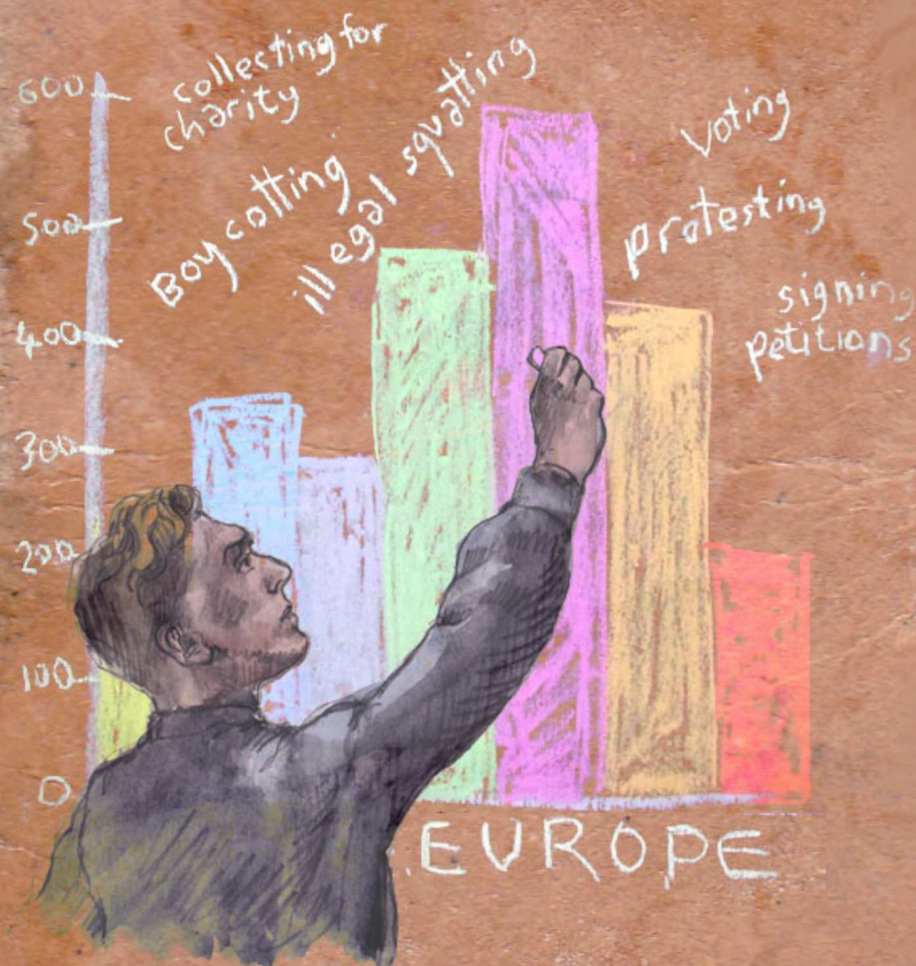 600
500
400
300
200
100
0
collecting for
charity
Boycotting
illegal squatting
Voting
protesting
signing
petitions
EUROPE